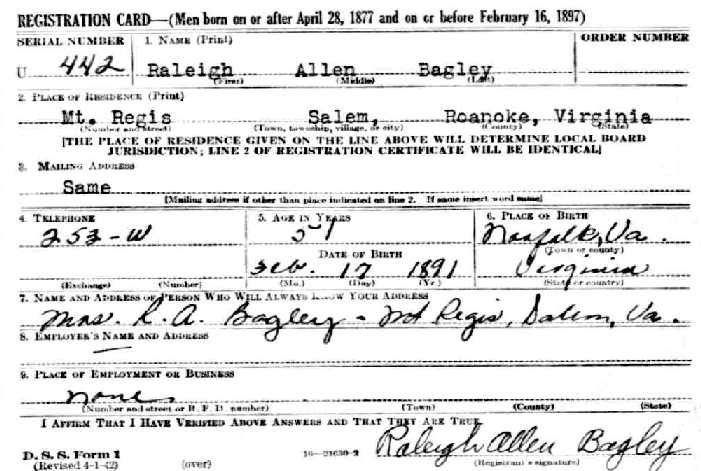 REGISTRATION CARD—(Men born on or after April 28, 1877 and on or before February 16, 1897)
SERIAL NUMBER 1. NAME (Print) ORDER NUMBER
U 442 Raleigh Allen Bagley
(First) (Middle) (Last)
2. PLACE OF RESIDENCE (Print)
Mt. Regis Salem, Roanoke, Virginia
(Number and street) (Town, township, village, or city) (County) (State)
[THE PLACE OF RESIDENCE GIVEN ON THE LINE ABOVE WILL DETERMINE LOCAL BOARD
JURISDICTION; LINE 2 OF REGISTRATION CERTIFICATE WILL BE IDENTICAL]
3. MAILING ADDRESS
Same
[Mailing address if other than place indicated on line 2. If same insert word same]
4. TELEPHONE 5. AGE IN YEARS 6. PLACE OF BIRTH
253-W 51 Norfolk, Va.
DATE OF BIRTH (Town or county)
Feb. 17 1891 Virginia
(Exchange) (Number) (Mo.) (Day) (Yr.) (State or country)
7. NAME AND ADDRESS OF PERSON WHO WILL ALWAYS KNOW YOUR ADDRESS
Mrs. R. A. Bagley - Mt Regis, Salem, Va.
8. EMPLOYER'S NAME AND ADDRESS
9. PLACE OF EMPLOYMENT OR BUSINESS
None
(Number and street or R. F. D. number) (Town) (County) (State)
I AFFIRM THAT I HAVE VERIFIED ABOVE ANSWERS AND THAT THEY ARE TRUE.
D. S. S. Form 1 16—21630-2 Raleigh Allen Bagley
(Revised 4-1-42) (over) (Registrant's signature)